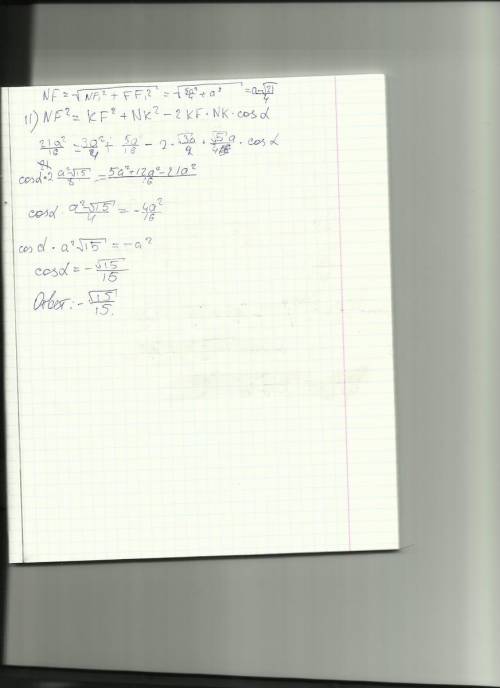 NF = √(NF₁² + FF₁²) = √(5a²/4 + a²) = a√21/4
11) NF² = KF² + NK² − 2KF · NK · cosα
21a²/16 = 3a²/4 + 5a/16 − 2 · √3a/2 · √5a/4 · cosα
cosα · 2 a²√15/8 = (5a² + 12a² − 21a²)/16
cosα · a²√15/4 = −4a²/16
cosα · a²√15 = −a²
cosα = −√15/15
Ответ: −√15/15.